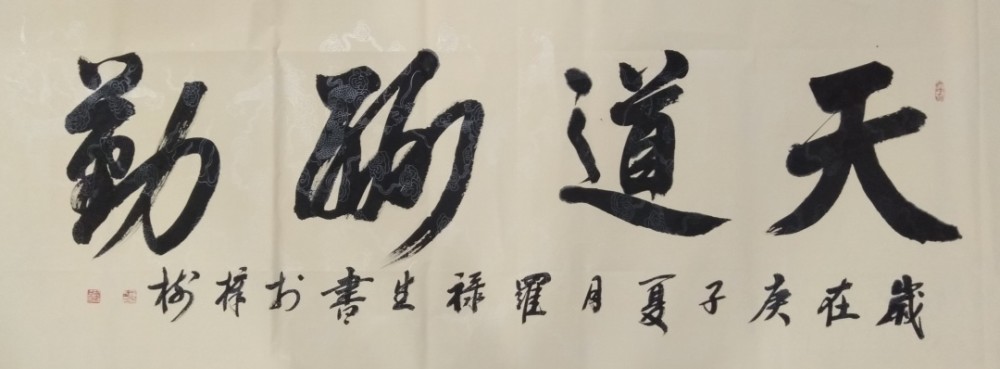 天道酬勤
歲在庚子夏月羅祿生書於樟樹